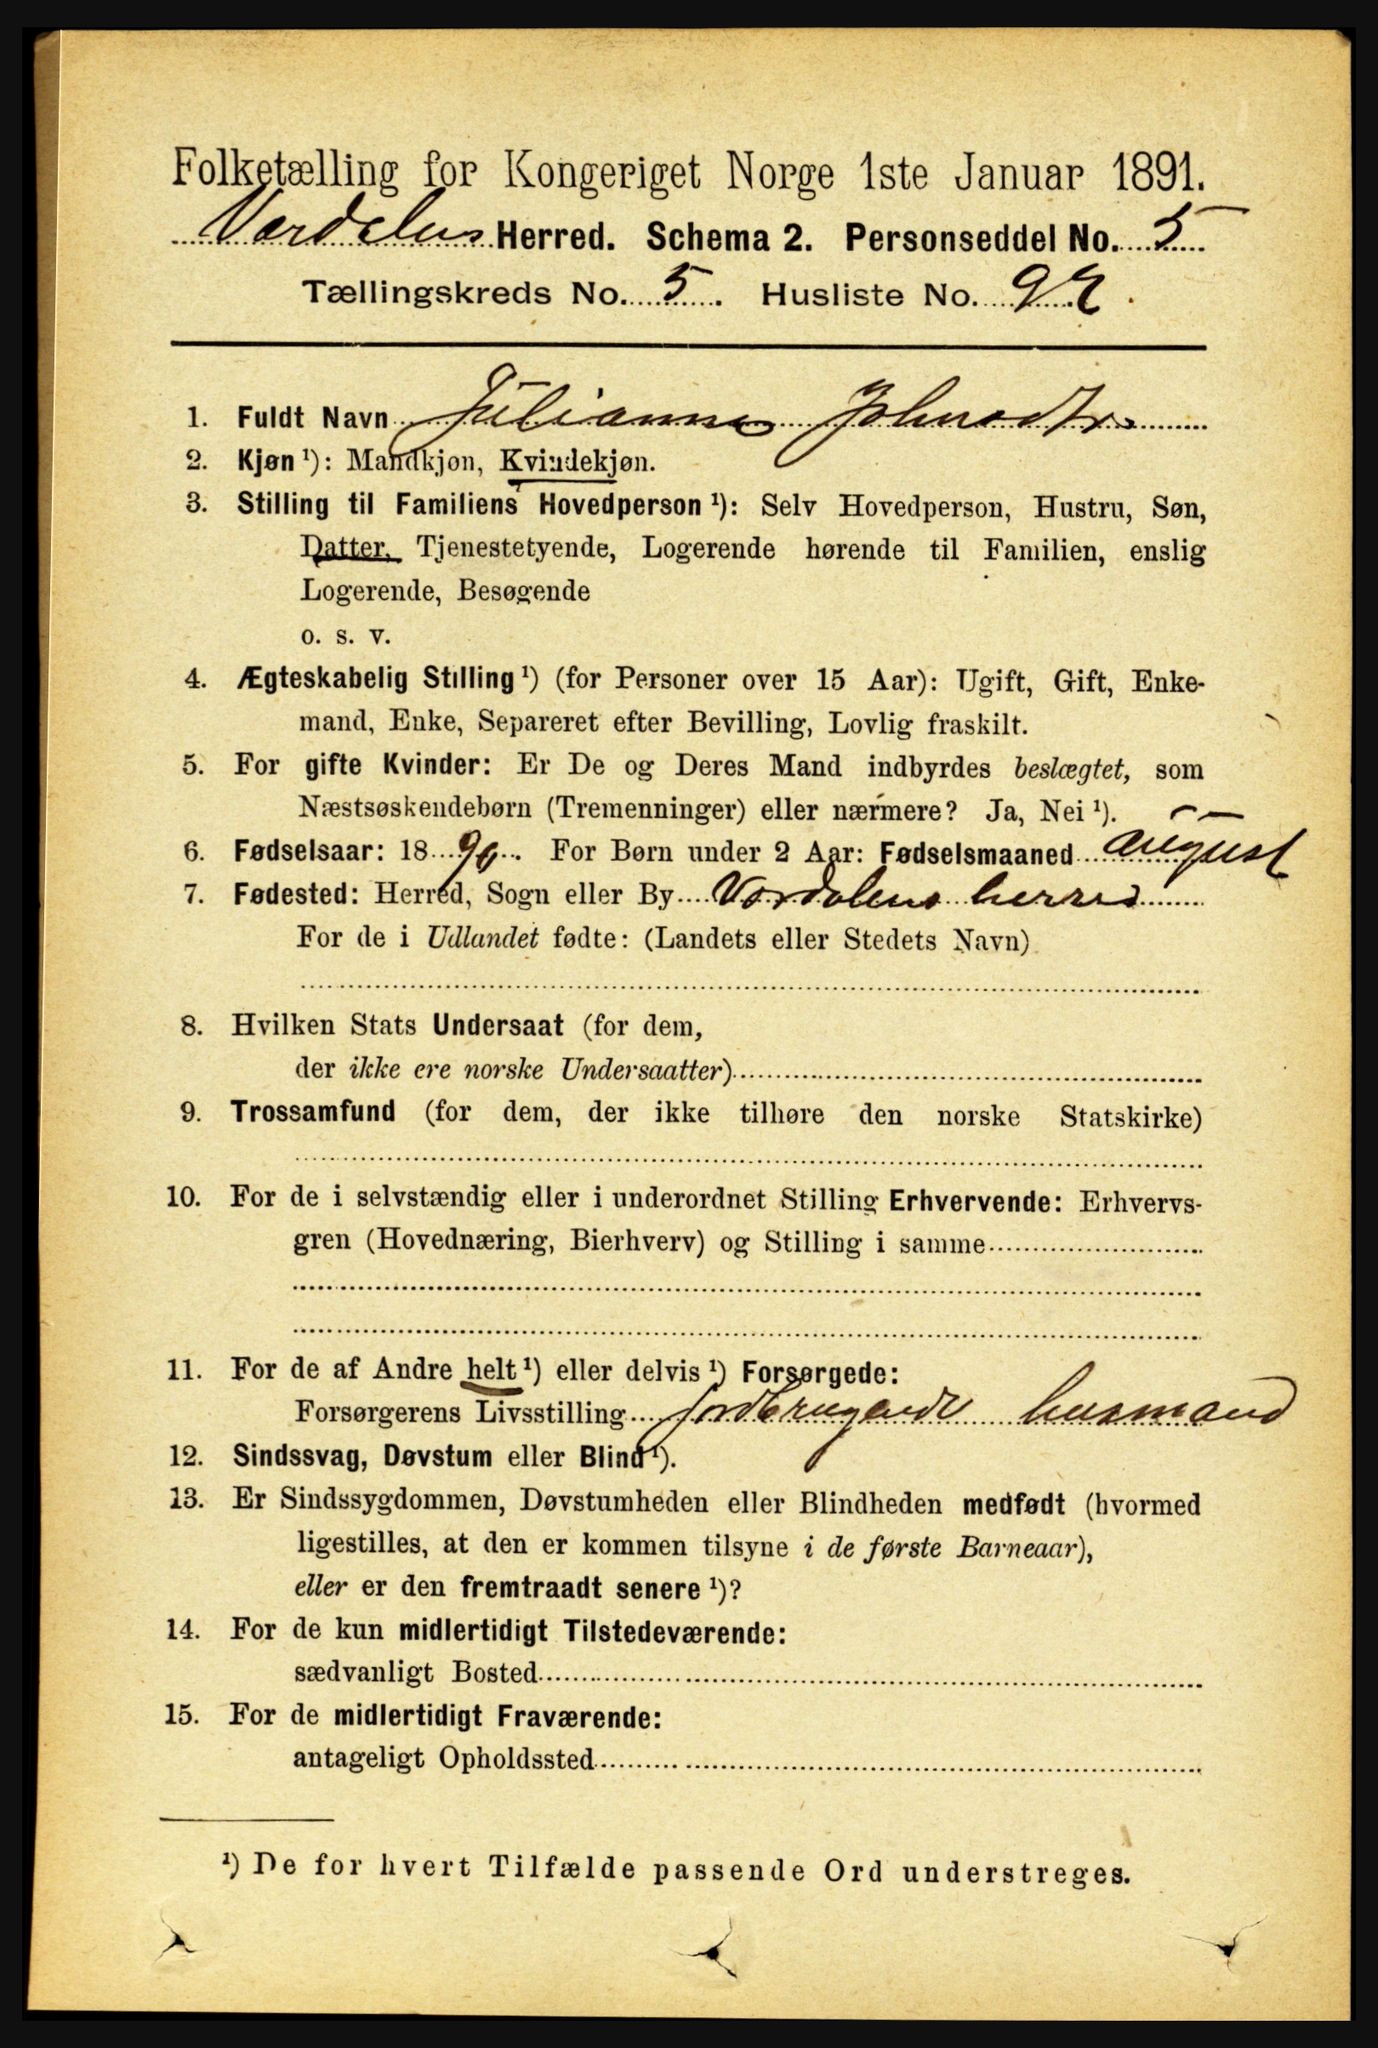 Folketælling for Kongeriget Norge 1ste Januar 1891.
Værdalens Herred. Schema 2. Personseddel No. 5
Tællingskreds No. 5. Husliste No. 92.
1. Fuldt Navn Julianna Johnsdtr
2. Kjøn ¹): Mandkjøn, Kvindekjøn.
3. Stilling til Familiens Hovedperson ¹): Selv Hovedperson, Hustru, Søn,
Datter, Tjenestetyende, Logerende hørende til Familien, enslig
Logerende, Besøgende
o. s. v.
4. Ægteskabelig Stilling ¹) (for Personer over 15 Aar): Ugift, Gift, Enke-
mand, Enke, Separeret efter Bevilling, Lovlig fraskilt.
5. For gifte Kvinder: Er De og Deres Mand indbyrdes beslægtet, som
Næstsøskendebørn (Tremenninger) eller nærmere? Ja, Nei ¹).
6. Fødselsaar: 18 90. For Børn under 2 Aar: Fødselsmaaned august
7. Fødested: Herred, Sogn eller By Værdalens herred
For de i Udlandet fødte: (Landets eller Stedets Navn)
8. Hvilken Stats Undersaat (for dem,
der ikke ere norske Undersaatter)
9. Trossamfund (for dem, der ikke tilhøre den norske Statskirke)
10. For de i selvstændig eller i underordnet Stilling Erhvervende: Erhvervs-
gren (Hovednæring, Bierhverv) og Stilling i samme
11. For de af Andre helt ¹) eller delvis ¹) Forsørgede:
Forsørgerens Livsstilling jordbrugende husmand
12. Sindssvag, Døvstum eller Blind ¹).
13. Er Sindssygdommen, Døvstumheden eller Blindheden medfødt (hvormed
ligestilles, at den er kommen tilsyne i de første Barneaar),
eller er den fremtraadt senere ¹)?
14. For de kun midlertidigt Tilstedeværende:
sædvanligt Bosted
15. For de midlertidigt Fraværende:
antageligt Opholdssted
¹) De for hvert Tilfælde passende Ord understreges.